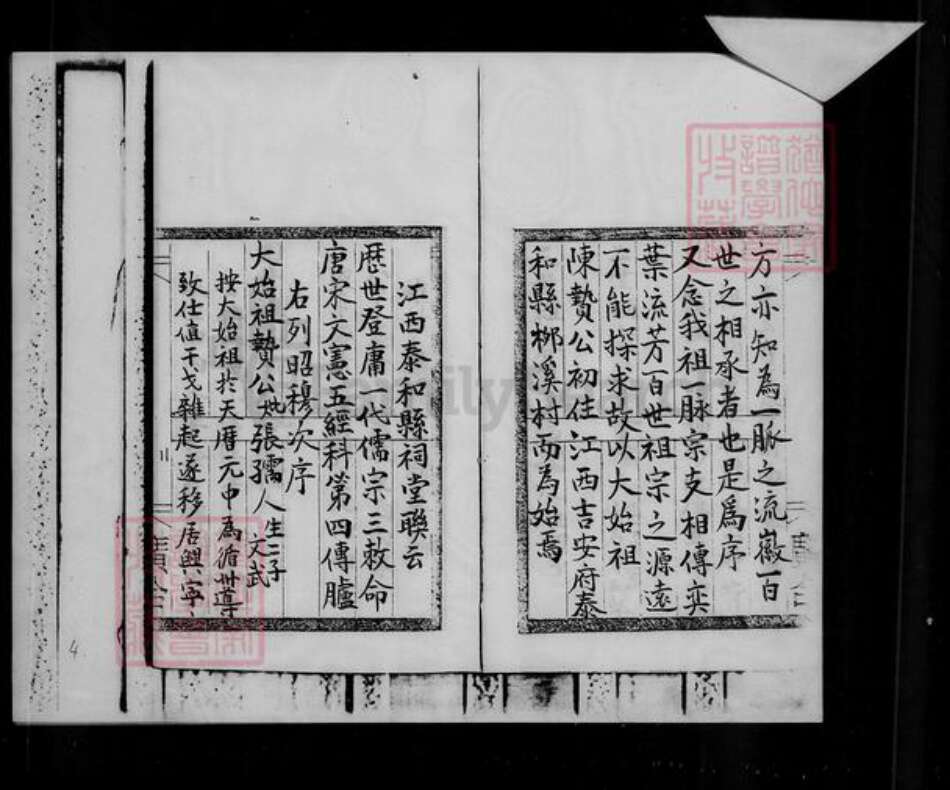 方亦知為一脈之流徽一百
世之相承者也是為序
又念我祖一脉宗支相傳奕
葉流芳百世祖宗之源遠
不能探求故以大始祖
陳贄公初住江西吉安府泰
和縣柳溪村而為始焉
江西泰和縣祠堂聯云
歷世登庸一代儒宗三敕命
唐宋文憲五經科第四傳臚
右列昭穆次序
大始祖贄公妣張孺人生二子文武
按大始祖於天曆元中為循州導
致仕值干戈雜起遂移居興寧
4